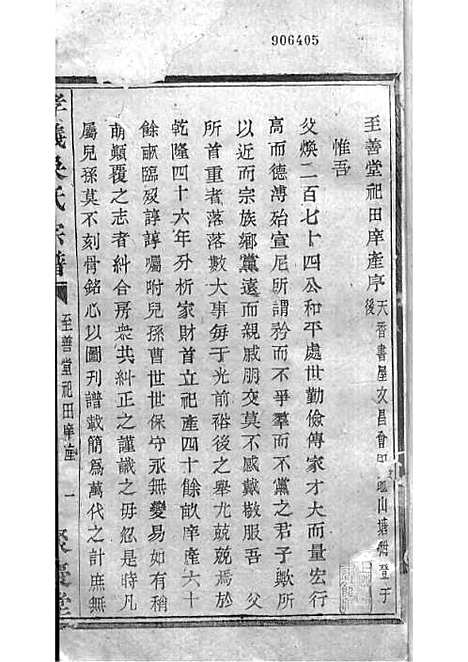 906405
至善堂祀田庠產序 天香書屋文昌會 山塘 登于後
惟吾
父煥二百七十四公和平處世勤儉傳家才大而量宏行
高而德溥殆宣尼所謂矜而不爭羣而不黨之君子歟所
以近而宗族鄉黨遠而親戚朋交莫不感戴敬服吾 父
所首重者落落數大事每于光前裕後之舉尤兢兢焉於
乾隆四十六年分析家財首立祀產四十餘畝庠產六十
餘畝臨歿諄諄囑咐兒孫曹世世保守永無變易如有稍
萌顛覆之志者糾合房衆共糾正之謹識之毋忽是時凡
屬兒孫莫不刻骨銘心以圖刊譜載簡爲萬代之計庶無
孝義吳氏宗譜
至善堂祀田庠產
一
聚慶堂